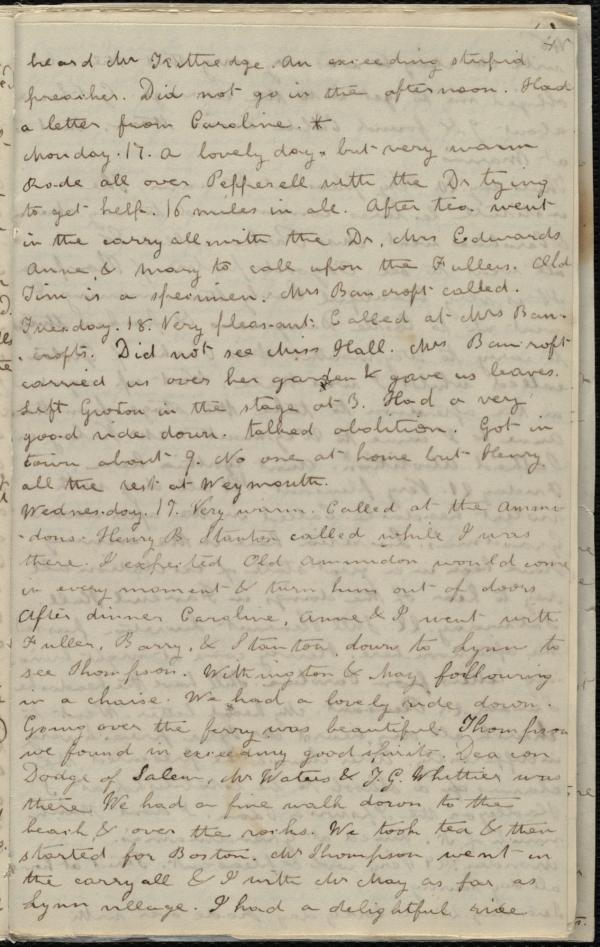 heard Mr Kittredge. An exceeding stupid
preacher. Did not go in the afternoon. Had
a letter from Caroline. *
Monday. 17. A lovely day, but very warm
Rode all over Pepperell with the Dr trying
to get help. 16 miles in all. After tea went
in the carryall with the Dr, Mrs Edwards
Anne, & Mary to call upon the Fullers. Old
Tim is a specimen. Mrs Bancroft called.
Tuesday. 18. Very pleasant. Called at Mrs Ban-
-crofts. Did not see Miss Hall. Mrs Bancroft
carried us over her garden & gave us leaves.
Left Groton in the stage at 3. Had a very
good ride down. talked abolition. Got in
town about 9. No one at home but Henry.
all the rest at Weymouth.
Wednesday. 19. Very warm. Called at the Ammi-
-dons. Henry B Stanton called while I was
there. I expected Old Ammidon would come
in every moment & turn him out of doors
After dinner Caroline, Anne & I went with
Fuller, Barry, & Stanton down to Lynn to
see Thompson. Withington & May following
in a chaise. We had a lovely ride down.
Going over the ferry was beautiful. Thompson
we found in exceeding good spirits. Deacon
Dodge of Salem, Mr Waters & J. G. Whittier was
there. We had a fine walk down to the
beach & over the rocks. We took tea & then
started for Boston. Mr Thompson went in
the carryall & I with Mr May as far as
Lynn village. I had a delightful ride